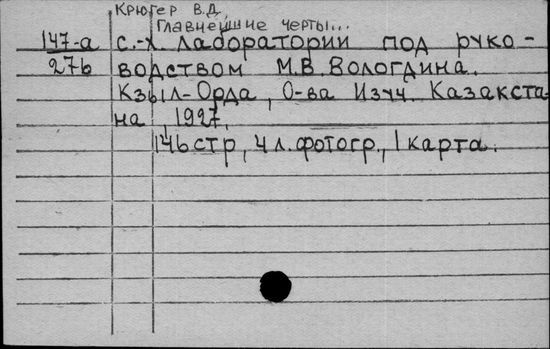 Крюгер В.Д.
Главнейшие черты...
147-а с.-х. лаборатории под руко-
27b водством М.В. Вологдина.
Кзыл-Орда, О-ва Изуч. Казакста-
на, 1927.
146 стр, 4 л. фотогр., 1 карта.